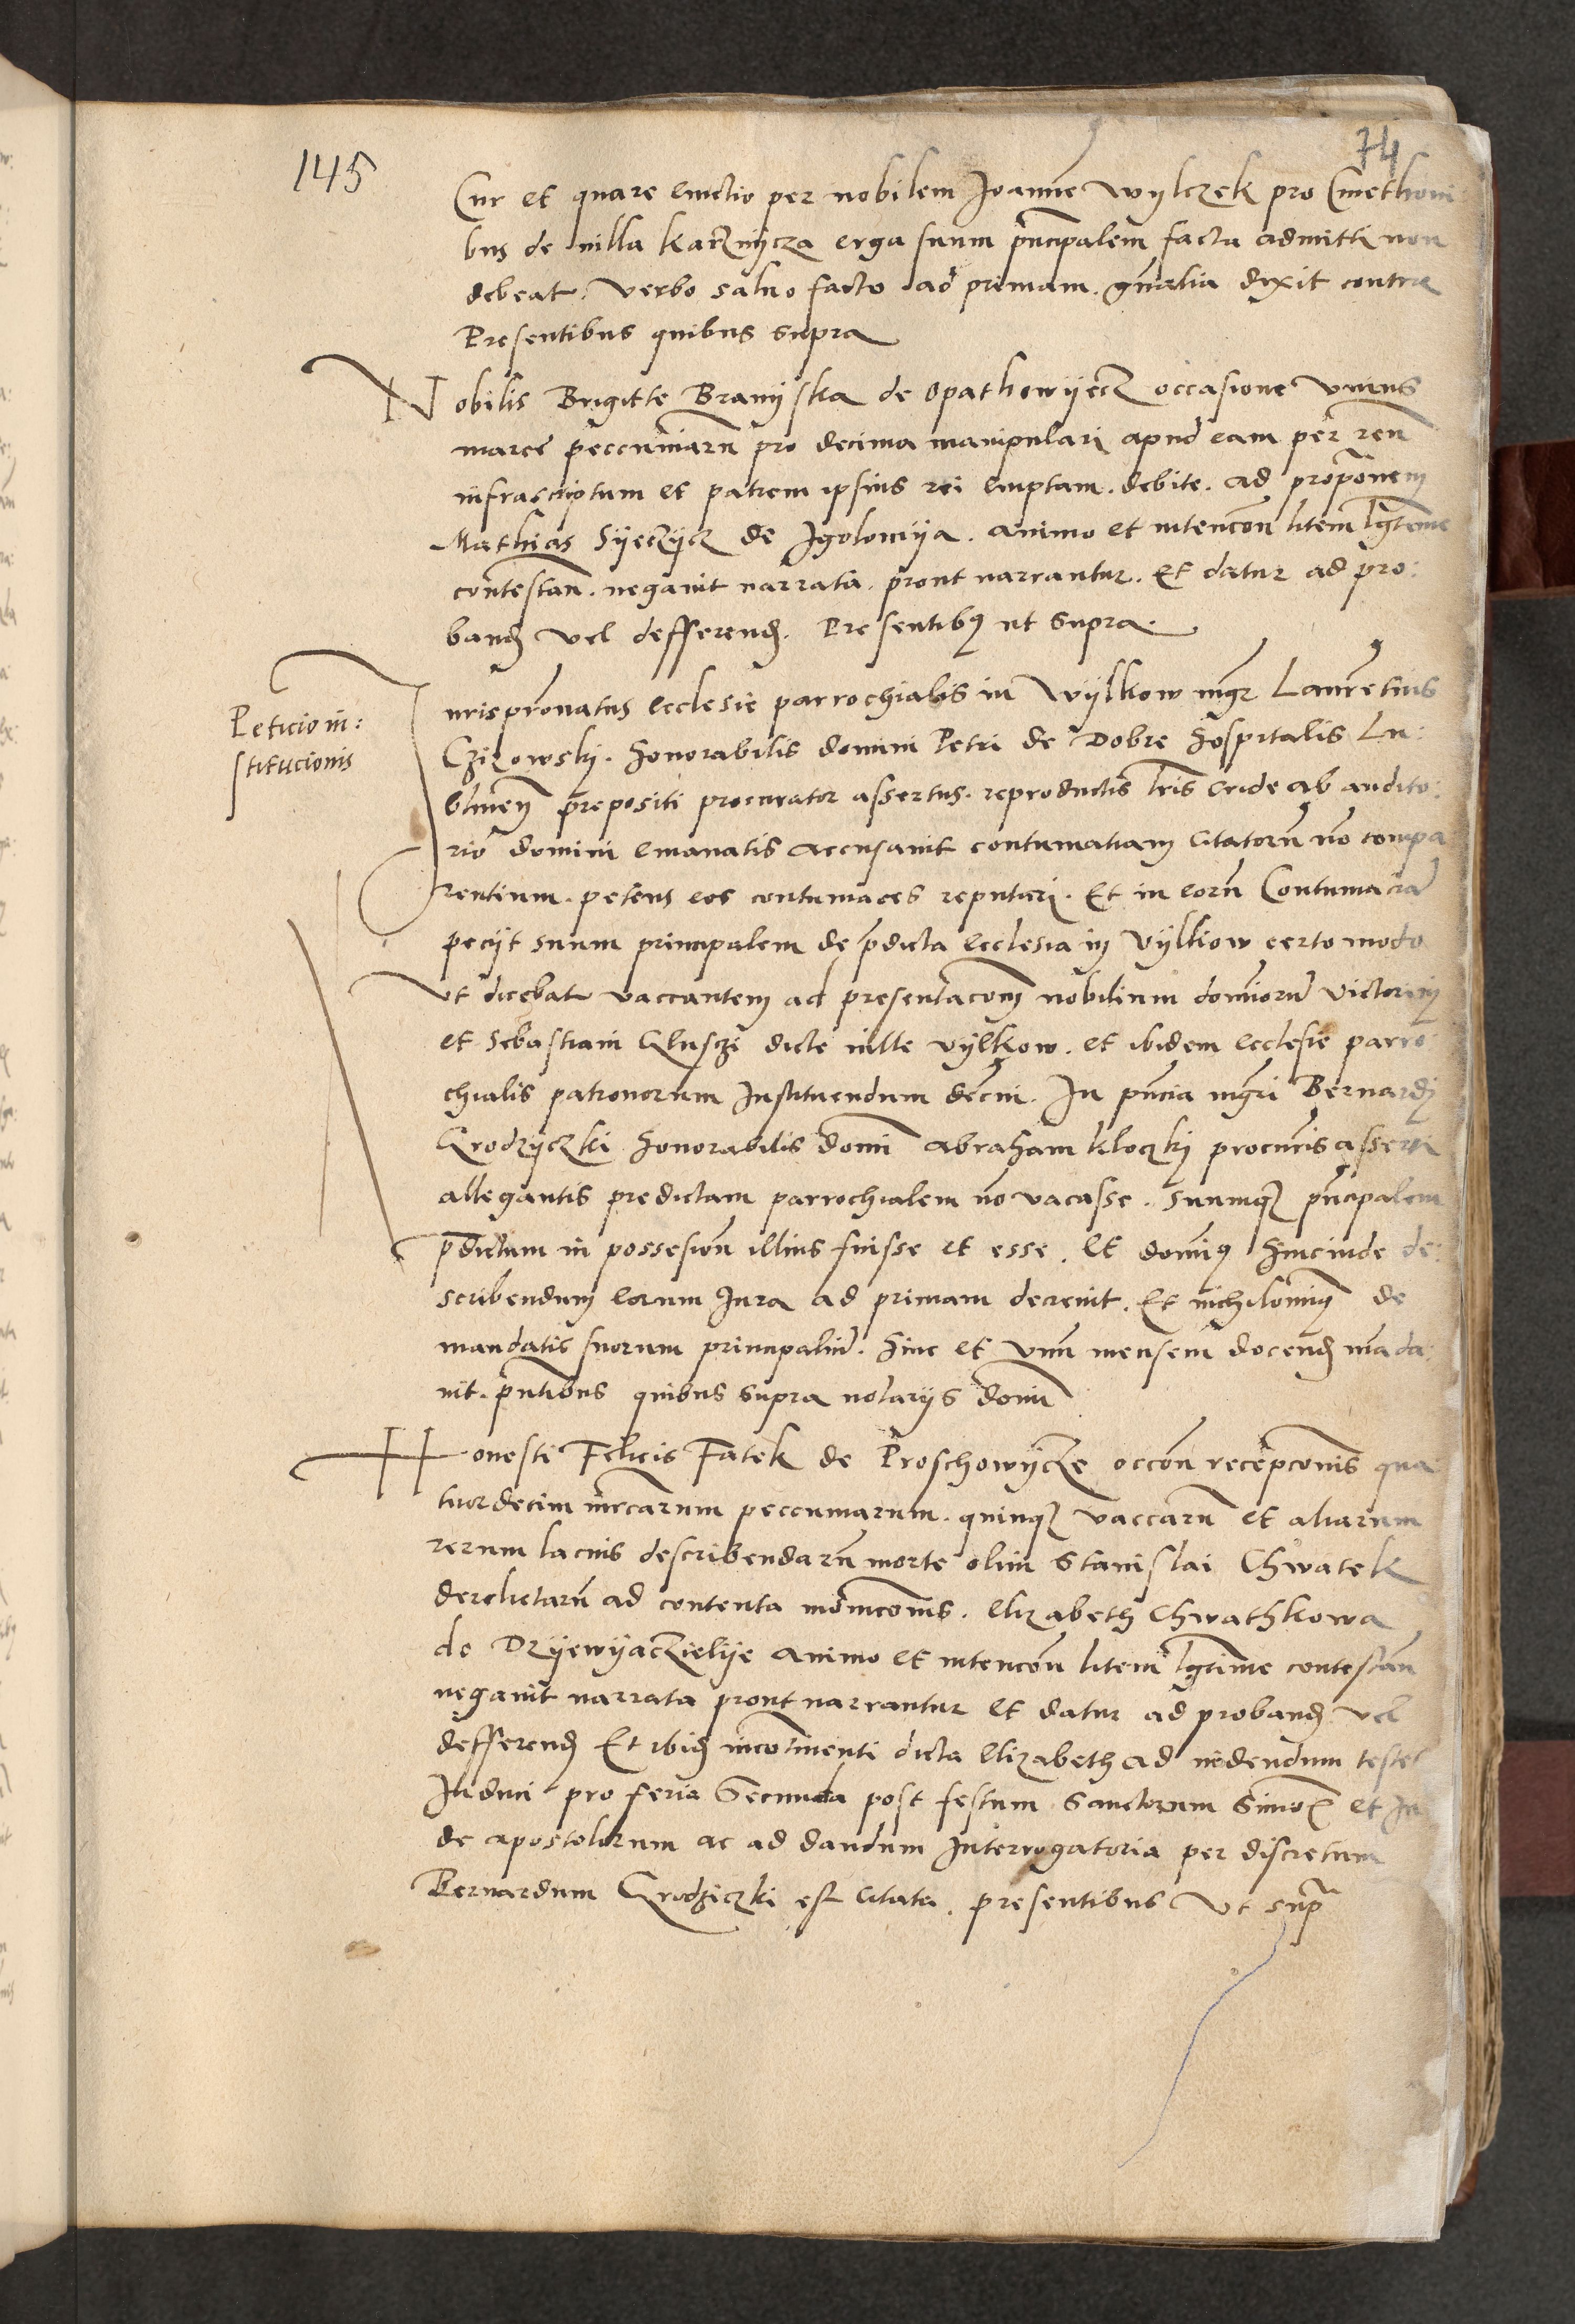 145
74
Cur et quare emctio per nobilem Joannem Wylczek pro Cmethoni
bus de villa Karznijcza erga suum principalem facta admitti non
debeat. Verbo saluo facto ad primam. generalia dixit contra
Presentibus quibus supra
Nobilis Brigitte Branijska de Opathowijecz occasione vnius
marce peccuniarum pro decima manipulari apud eam per reum
infrascriptum et patrem ipsius rei emptam. debite. ad proponem
Mathias Sijeczijcz de Jgolomija. animo et intencon litem lgtime
contestan. negauit narrata. prout narrantur. Et datur ad pro:
band vel defferend. Presentibus ut supra.
Peticio in:
stitucionis
Jurispronatus ecclesie parrochialis in Wijlkow mgr Laurentius
Czizowski. Honorabilis domini Petri de Dobre Hospitalis Lu:
blinen prepositi procurator assertus. reproductis lris cride ab audito:
rio domini emanatis accusauit contumatiam citatorum non compa
rentium. petens eos contumaces reputari. Et in eorum Contumacia
pecijt suum principalem de pdicta ecclesia in Vijlkow certo modo
Vt dicebatur vaccantem ad presentacom nobilium domiorum Victorini
et Sebastiani Gluschi dicte ville Vijlkow. et ibidem ecclesie parro
chialis patronorum Instituendum decni. In pncia mgri Bernardi
Grodzijczki Honorabilis domi Abraham Kloczki procuris asserti
allegantis predictam parrochialem no vacasse. Suumque pncipalem
pdictum in possesion illius fuisse et esse. Et dominus Hincinde de:
scribendum eorum Jura ad primam decreuit. Et nichilominus de
mandatis suorum principalium. Hinc et vnum mensem docend manda:
uit. pntibus quibus supra notarijs domi
Honesti Felicis Fatek de Proschowijcze occon recepconis qua
tuordecim mrcarum peccuniarum. quinque vaccarum et aliarum
rerum lacius describendarum morte olim Stanislai Chwatek
derelictarum ad contenta moniconis. Elizabeth Chwathkowa
de Drijewijaczielije animo et intencon litem lgtime contestan
negauit narrata prout narrantur et datur ad proband vel
defferend Et ibid incontinenti dicta Elizabeth ad videndum testes
Induci pro feria Secunda post festum Sanctorum Simonis et Ju
de apostolorum ac ad dandum Interrogatoria per discretum
Bernardum Grodziczki est citata. presentibus Vt supra